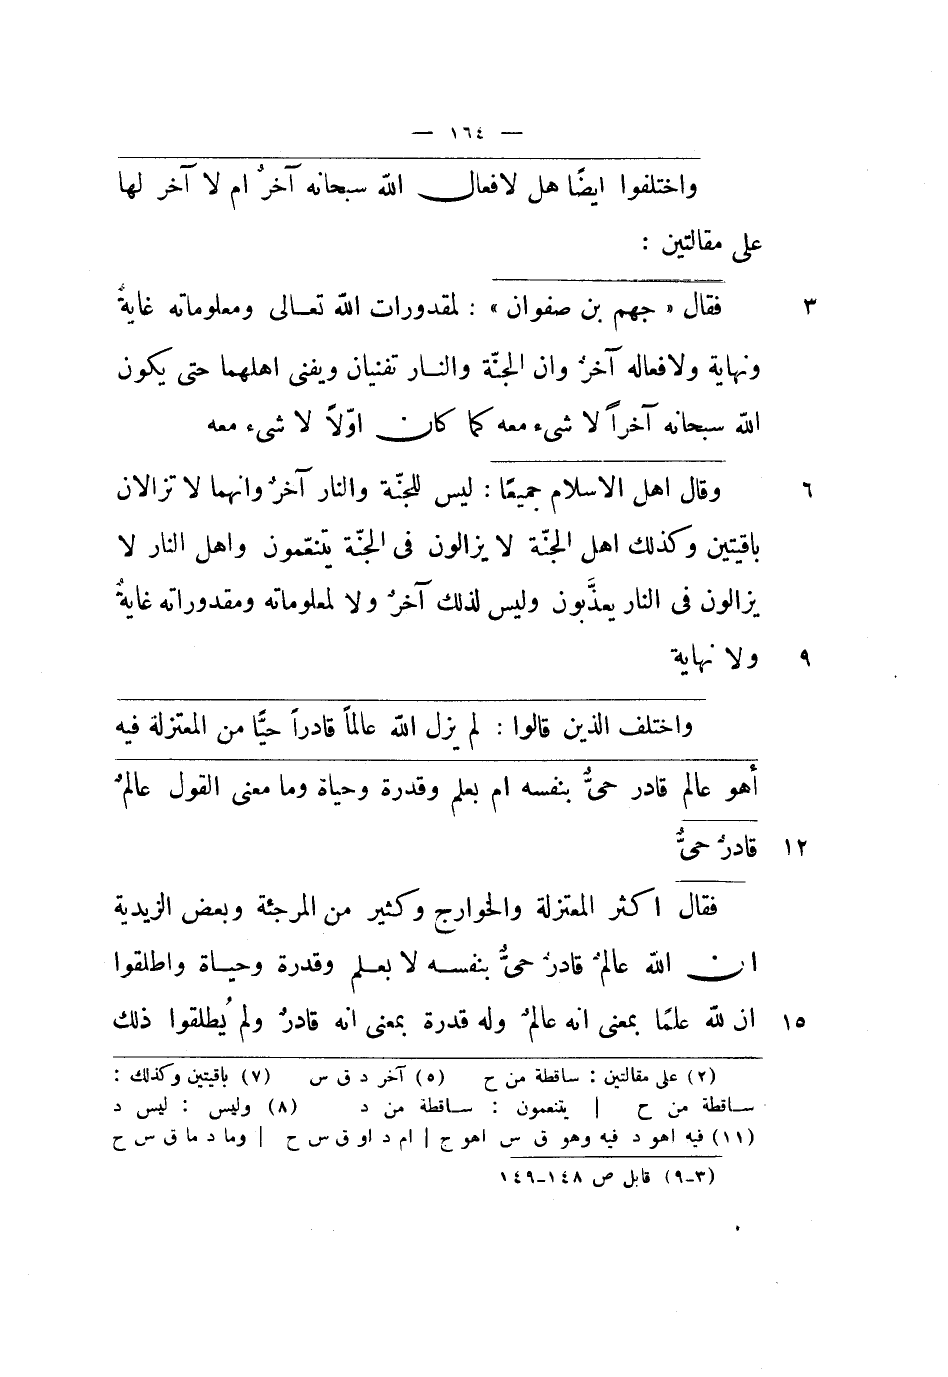 — ١٦٤ —
واختلفوا ايضًا هل لافعال الله سبحانه آخرٌ ام لا آخر لها
على مقالتين :
٣ فقال « جهم بن صفوان » : لمقدورات الله تعالى ومعلوماته غايةٌ
ونهاية ولافعاله آخرٌ وان الجنّة والنار تفنيان ويفنى اهلهما حتى يكون
الله سبحانه آخراً لا شىء معه كما كان اوّلاً لا شىء معه
٦ وقال اهل الاسلام جميعًا : ليس للجنّة والنار آخرٌ وانهما لا تزالان
باقيتين وكذلك اهل الجنّة لا يزالون فى الجنّة يتنعّمون واهل النار لا
يزالون فى النار يعذَّبون وليس لذلك آخرٌ ولا لمعلوماته ومقدوراته غايةٌ
٩ ولا نهاية
واختلف الذين قالوا : لم يزل الله عالماً قادراً حيًّا من المعتزلة فيه
أهو عالم قادر حىٌّ بنفسه ام بعلم وقدرة وحياة وما معنى القول عالمٌ
١٢ قادرٌ حىٌّ
فقال اكثر المعتزلة والخوارج وكثير من المرجئة وبعض الزيدية
ان الله عالمٌ قادرٌ حىٌّ بنفسه لا بعلم وقدرة وحياة واطلقوا
١٥ ان لله علمًا بمعنى انه عالمٌ وله قدرة بمعنى انه قادرٌ ولم يُطلقوا ذلك
(٢) على مقالتين : ساقطة من ح (٥) آخر د ق س (٧) باقيتين وكذلك :
ساقطة من ح | يتنعمون : ساقطة من د (٨) وليس : ليس د
(١١) فيه اهو د فيه وهو ق س اهو ح | ام د او ق س ح | وما د ما ق س ح
(٣-٩) قابل ص ١٤٨-١٤٩